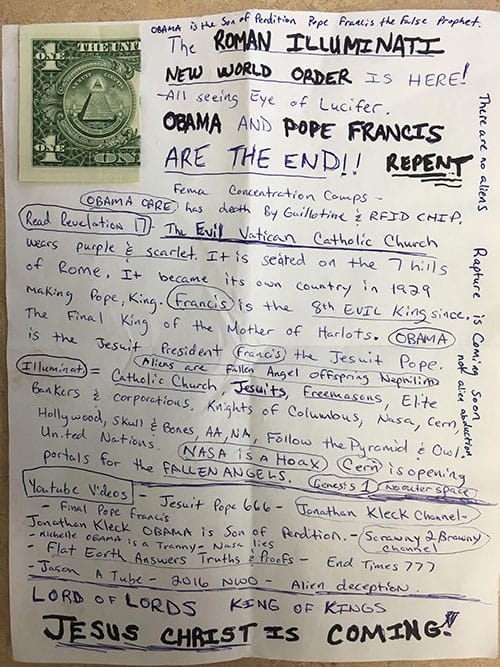 OBAMA is the Son of Perdition Pope Francis the False Prophet.
ONE
THE UNIT
1
ANNUIT CŒPTIS
ONE
1
ON
The ROMAN ILLUMINATI
NEW WORLD ORDER IS HERE!
-All seeing Eye of Lucifer.
OBAMA AND POPE FRANCIS
ARE THE END!! REPENT
Fema Concentration Camps -
OBAMA CARE has death By Guillotine & RFID CHIP.
Read Revelation 17 - The Evil Vatican Catholic Church
wears purple & scarlet. It is seated on the 7 hills
of Rome. It became its own country in 1929
making Pope, King. Francis is the 8th EVIL King since.
The Final King of the Mother of Harlots. OBAMA
is the Jesuit President Francis the Jesuit Pope.
Aliens are Fallen Angel offspring Nephilim
Illuminati = Catholic Church, Jesuits, Freemasons, Elite
Bankers & corporations. Knights of Columbus, Nasa, Cern,
Hollywood, Skull & Bones, AA, NA, Follow the Pyramid & Owl.
United Nations. NASA is A HOAX Cern is opening
portals for the FALLEN ANGELS. Genesis 1 No outer space
Youtube Videos - Jesuit Pope 666 - Jonathan Kleck Channel -
- Final Pope Francis
Jonathan Kleck OBAMA is Son of Perdition. - Scrawny 2 Brawny channel
- Michelle OBAMA is a Tranny - Nasa lies
- Flat Earth Answers Truths & Proofs - End Times 777
- Jason A Tube - 2016 NWO - Alien deception.
LORD OF LORDS KING OF KINGS
JESUS CHRIST IS COMING!!
There are no aliens Rapture is Coming Soon
not alien abduction